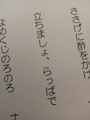 ささげに酢をかけ
立ちましょ、らっぱで
なめくじのろのろ